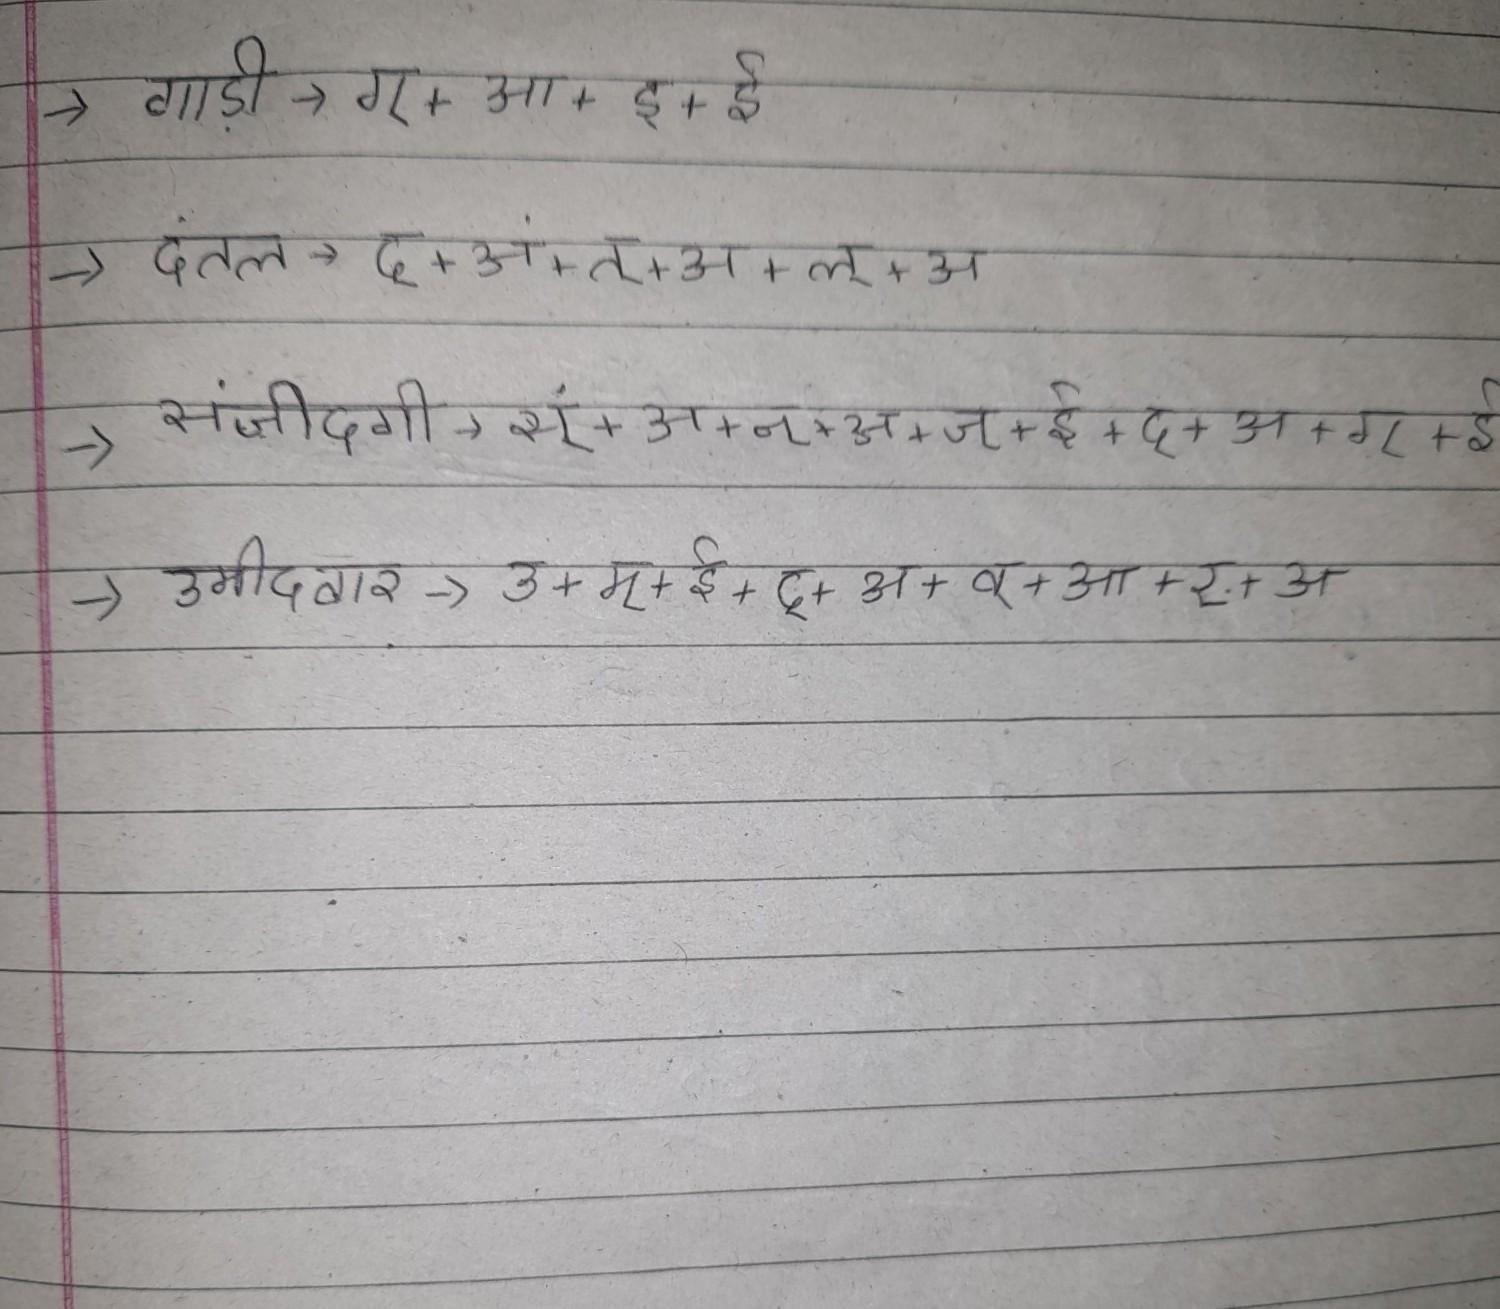 → गाड़ी → ग् + आ + इ + ई
→ दंतल → द् + अं + त् + अ + ल् + अ
→ संजीदगी → स् + अ + न् + अ + ज् + ई + द् + अ + ग् + ई
→ उमीदवार → उ + म् + ई + द् + अ + व् + आ + र् + अ